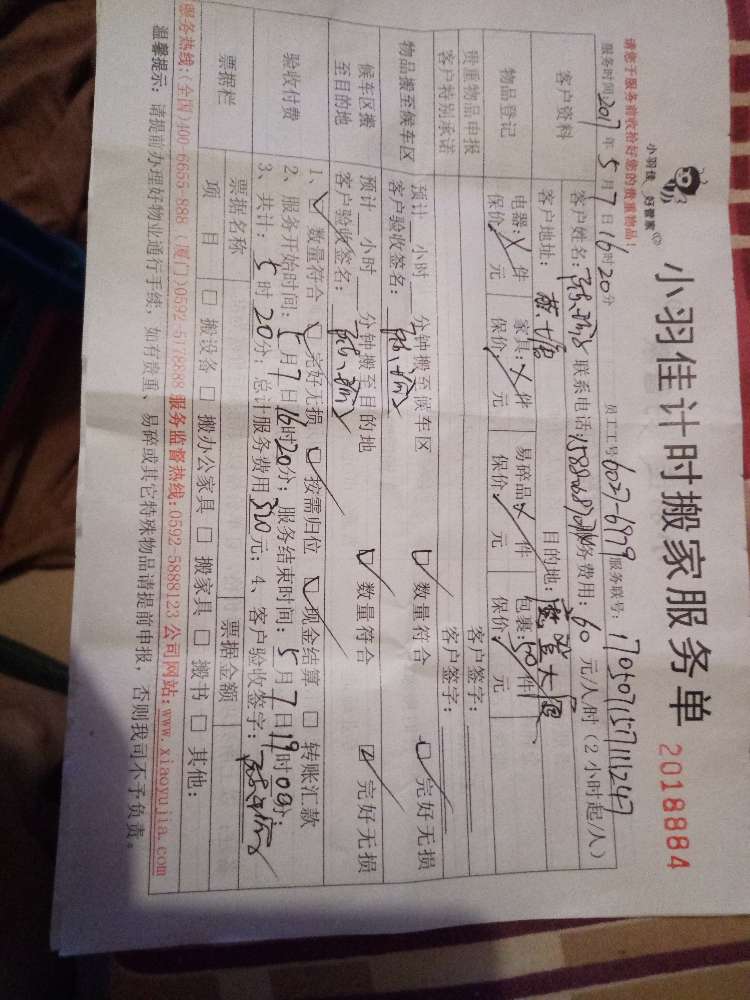 小羽佳计时搬家服务单
2018884
小羽佳 好管家
请您于服务前收拾好您的贵重物品!
服务时间: 2017 年 5 月 7 日 16 时 20 分 员工工号: 6027-6979 服务联号:
客户资料
客户姓名: 联系电话: 服务费用: 60 元/人/时(2小时起/人)
客户地址: 目的地:
物品登记
电器: 件 家具: 件 易碎品 件 包裹: 50 件
保价: 元 保价: 元 保价: 元 保价: 元
贵重物品申报 客户签字:
客户特别承诺 客户签字:
物品搬至候车区
预计 小时 分钟搬至候车区 ☑ 数量符合 ☑ 完好无损
客户验收签名:
候车区搬至目的地
预计 小时 分钟搬至目的地 ☑ 数量符合 ☑ 完好无损
客户验收签名:
验收付费
1、☑ 数量符合 ☑ 完好无损 ☑ 按需归位 ☑ 现金结算 □ 转账汇款
2、服务开始时间: 5 月 7 日 16 时 20 分; 服务结束时间: 5 月 7 日 19 时 00 分;
3、共计: 5 时 20 分; 总计服务费用 320 元; 4、客户验收签字:
票据栏
票据名称 票据金额
项目 □ 搬设备 □ 搬办公家具 □ 搬家具 □ 搬书 □ 其他:
服务热线:(全国)400-6655-888 (厦门)0592-5178888 服务监督热线:0592-5888123 公司网站:www.xiaoyujia.com
温馨提示: 请提前办理好物业通行手续, 如有贵重、易碎或其它特殊物品请提前申报, 否则我司不予负责。